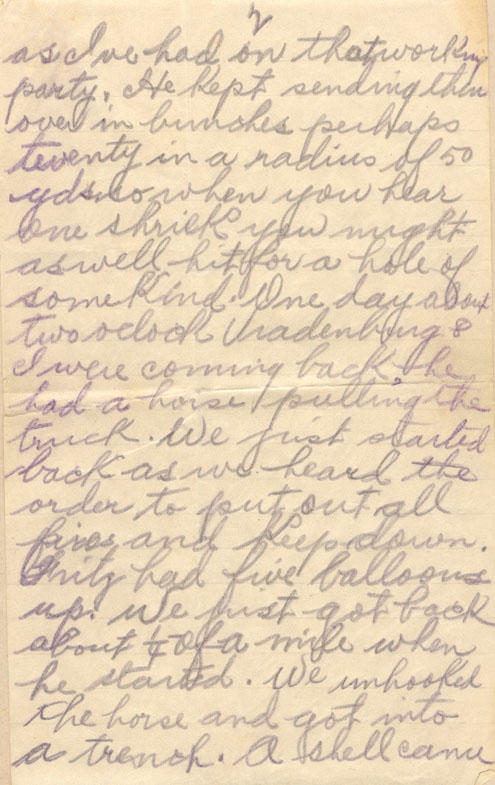 2
as I've had on that working
party. He kept sending them
over in bunches perhaps
twenty in a radius of 50
yds so when you hear
one shriek you might
as well hit for a hole of
some kind. One day about
two oclock Vradenburg &
I were coming back, he
had a horse pulling the
truck. We just started
back as we heard the
order to put out all
fires and keep down.
Fritz had five balloons
up. We just got back
about ¼ of a mile when
he started. We unhooked
the horse and got into
a trench. A shell came